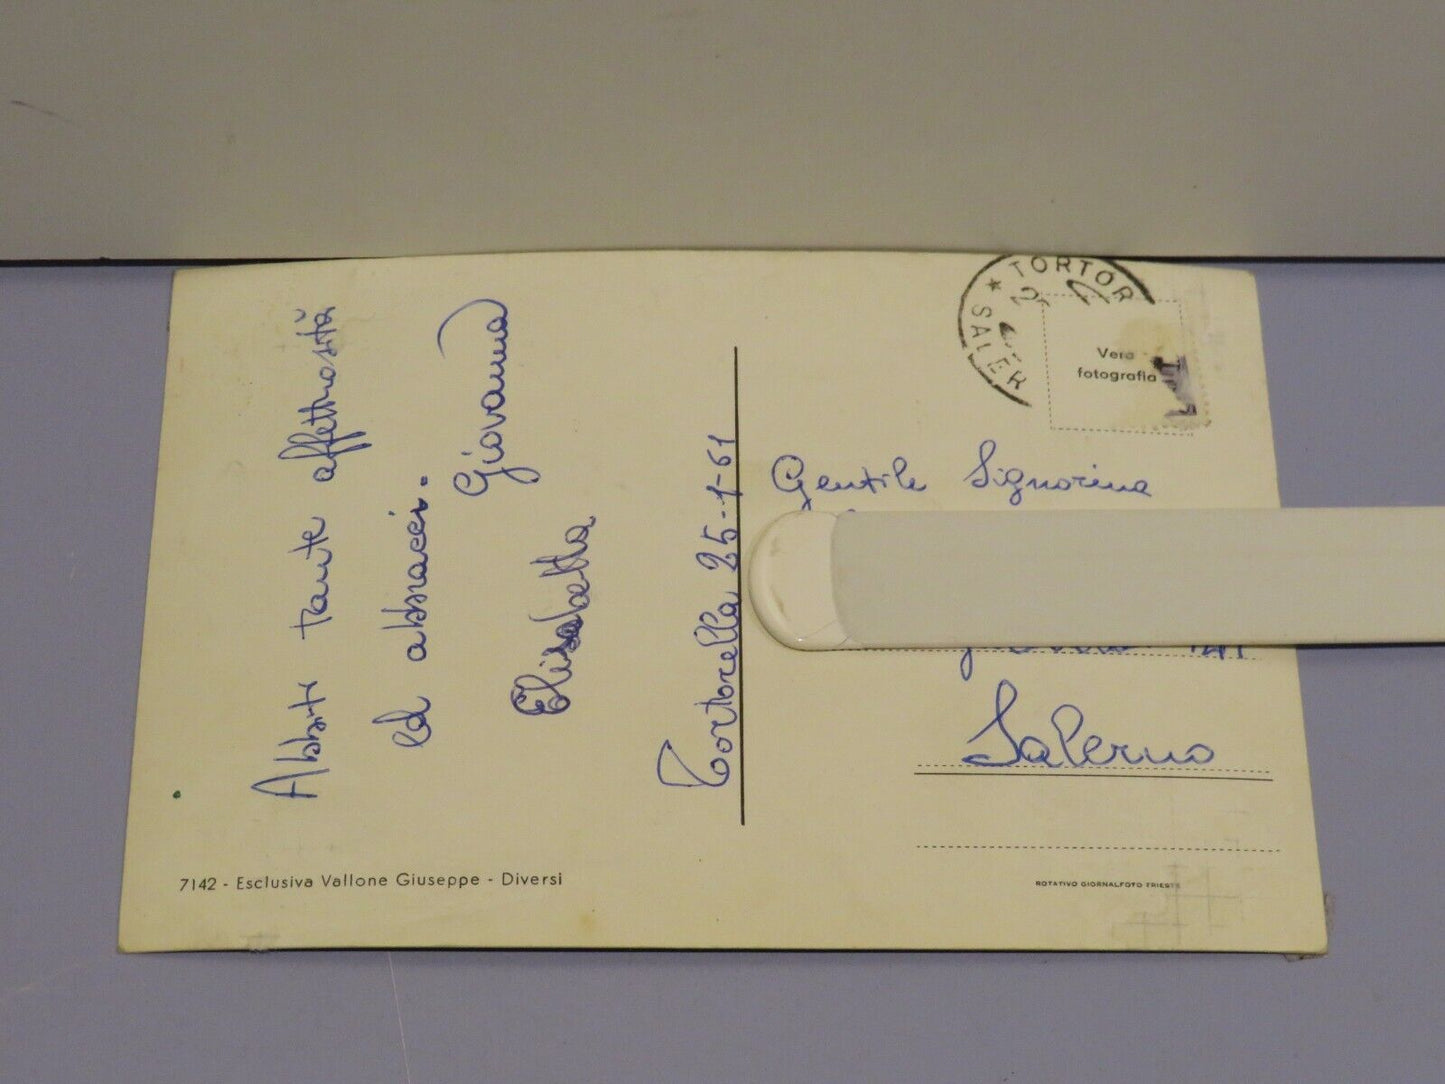 Abbiti tante affettuosità
ed abbracci.
Giovanna
Elisabetta
Tortorella 25-1-61
7142 - Esclusiva Vallone Giuseppe - Diversi
TORTOR
SALER
Vera
fotografia
Gentile Signorina
141
Salerno
ROTATIVO GIORNALFOTO TRIESTE